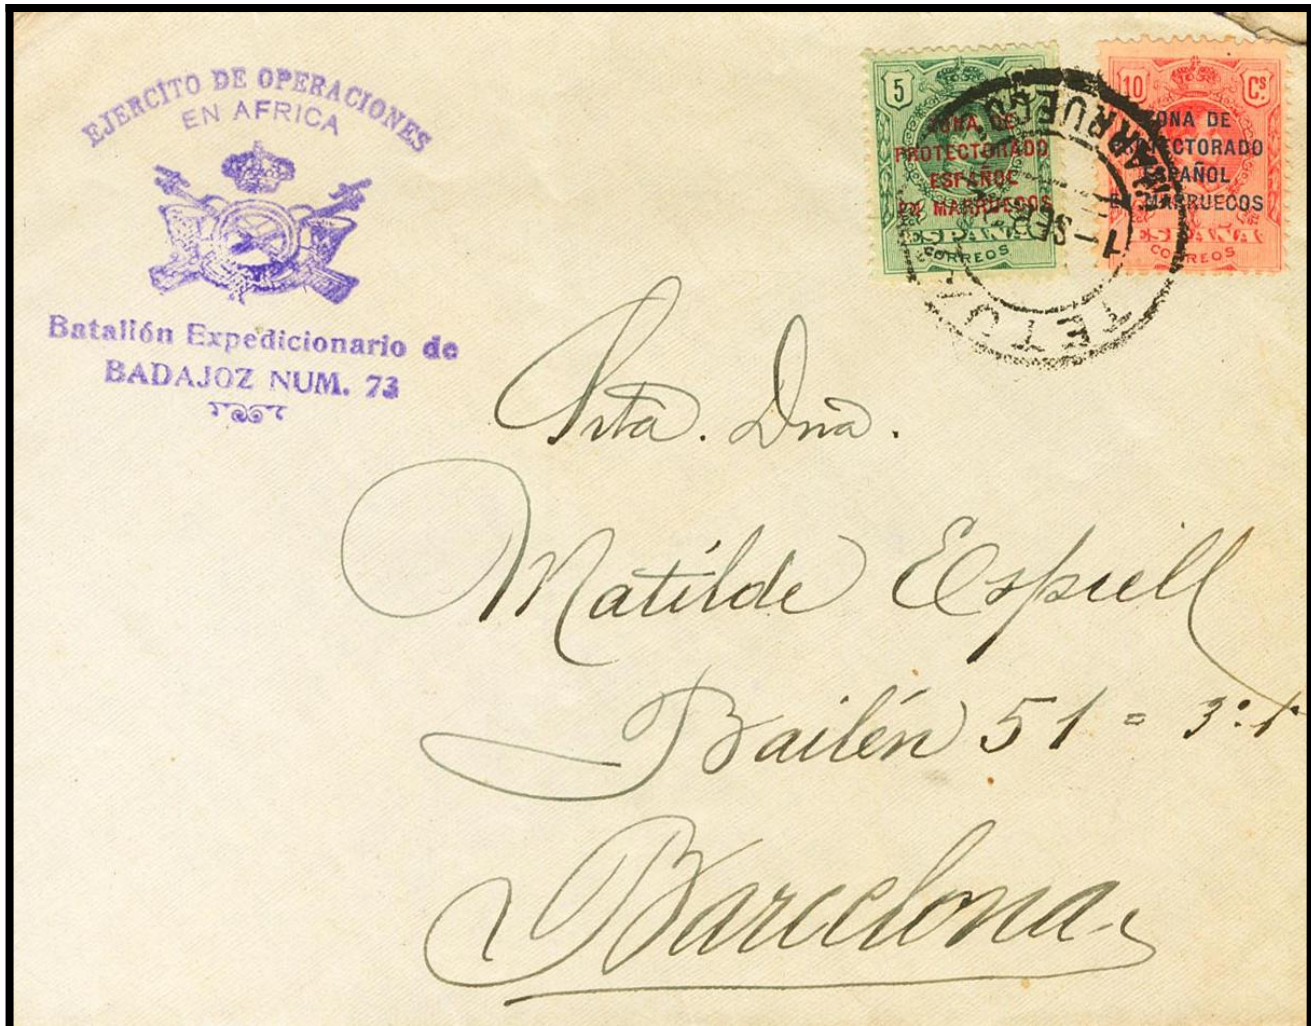 EJERCITO DE OPERACIONES
EN AFRICA
Batallón Expedicionario de
BADAJOZ NUM. 73
5
ZONA DE
PROTECTORADO
ESPAÑOL
EN MARRUECOS
ESPAÑA
CORREOS
10 Cs
ZONA DE
PROTECTORADO
ESPAÑOL
EN MARRUECOS
ESPAÑA
CORREOS
MARRUECOS
1 - SE
TETUA
Srta. Dña.
Matilde Espiell
Bailén 51 = 3º 1ª
Barcelona